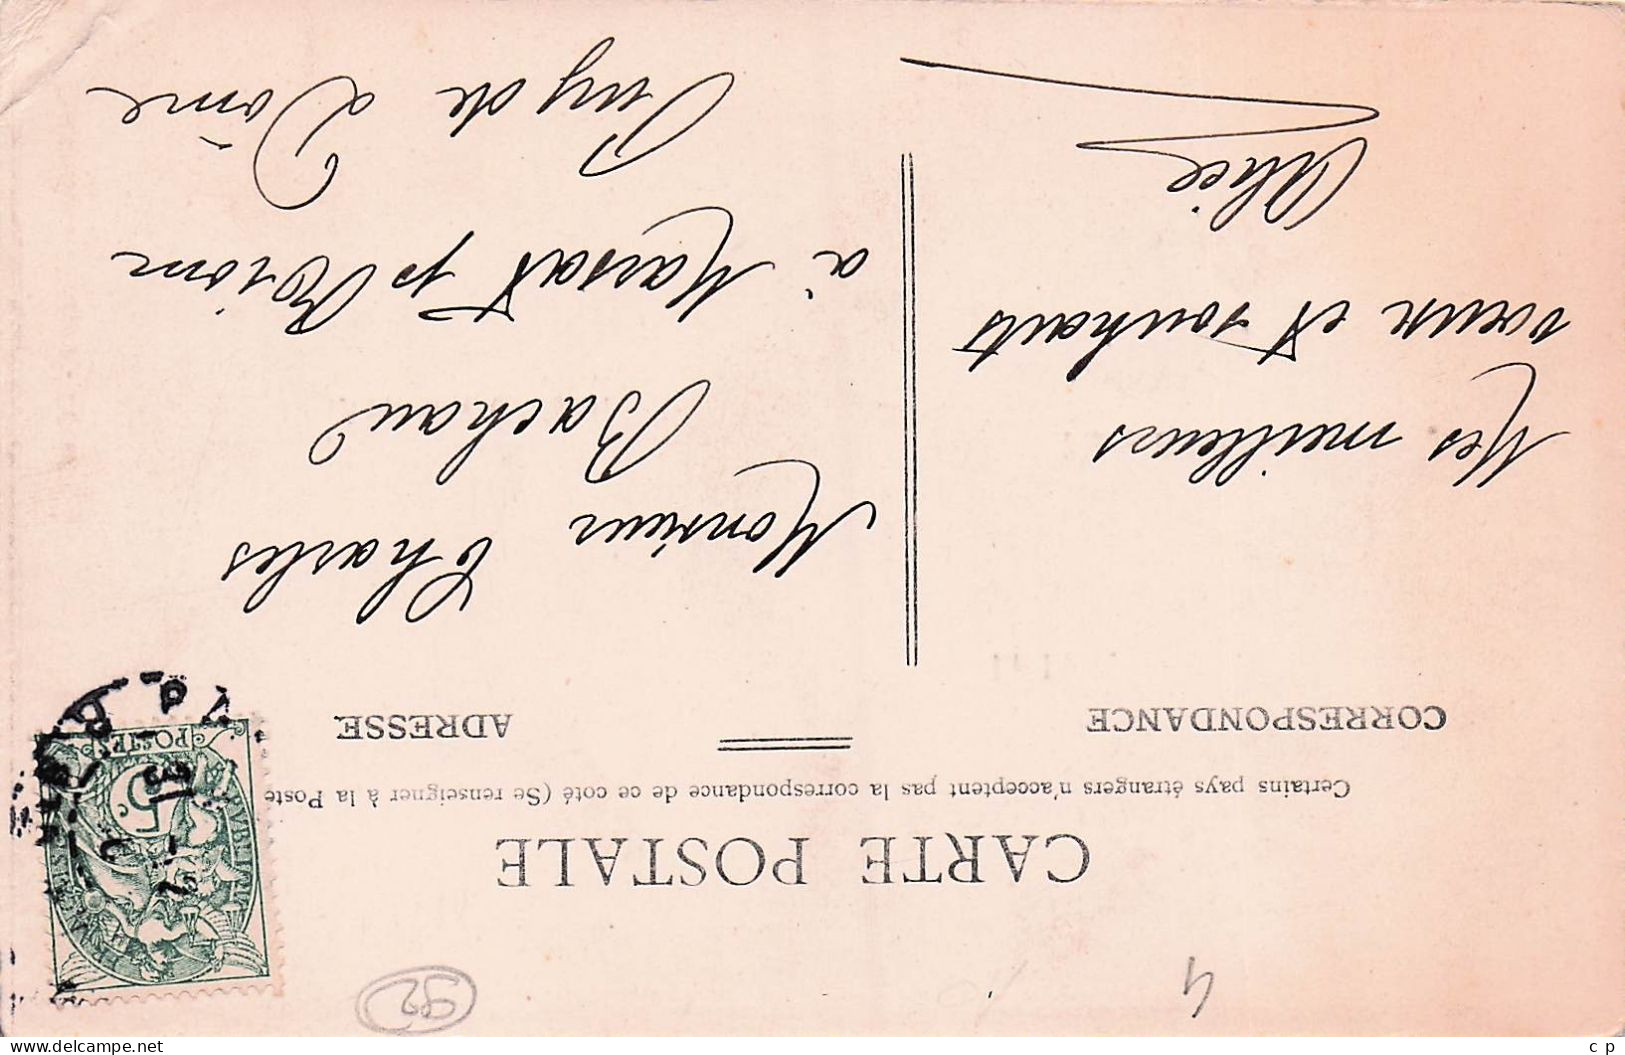 4
92
CARTE POSTALE
Certains pays étrangers n'acceptent pas la correspondance de ce coté (Se renseigner à la Poste
CORRESPONDANCE
ADRESSE
Mes meilleurs
vœux et souhaits
Alice
Monsieur Charles
Bachau
à Marsat p Riom
Puy de Dôme
POSTES
5
www.delcampe.net
c p